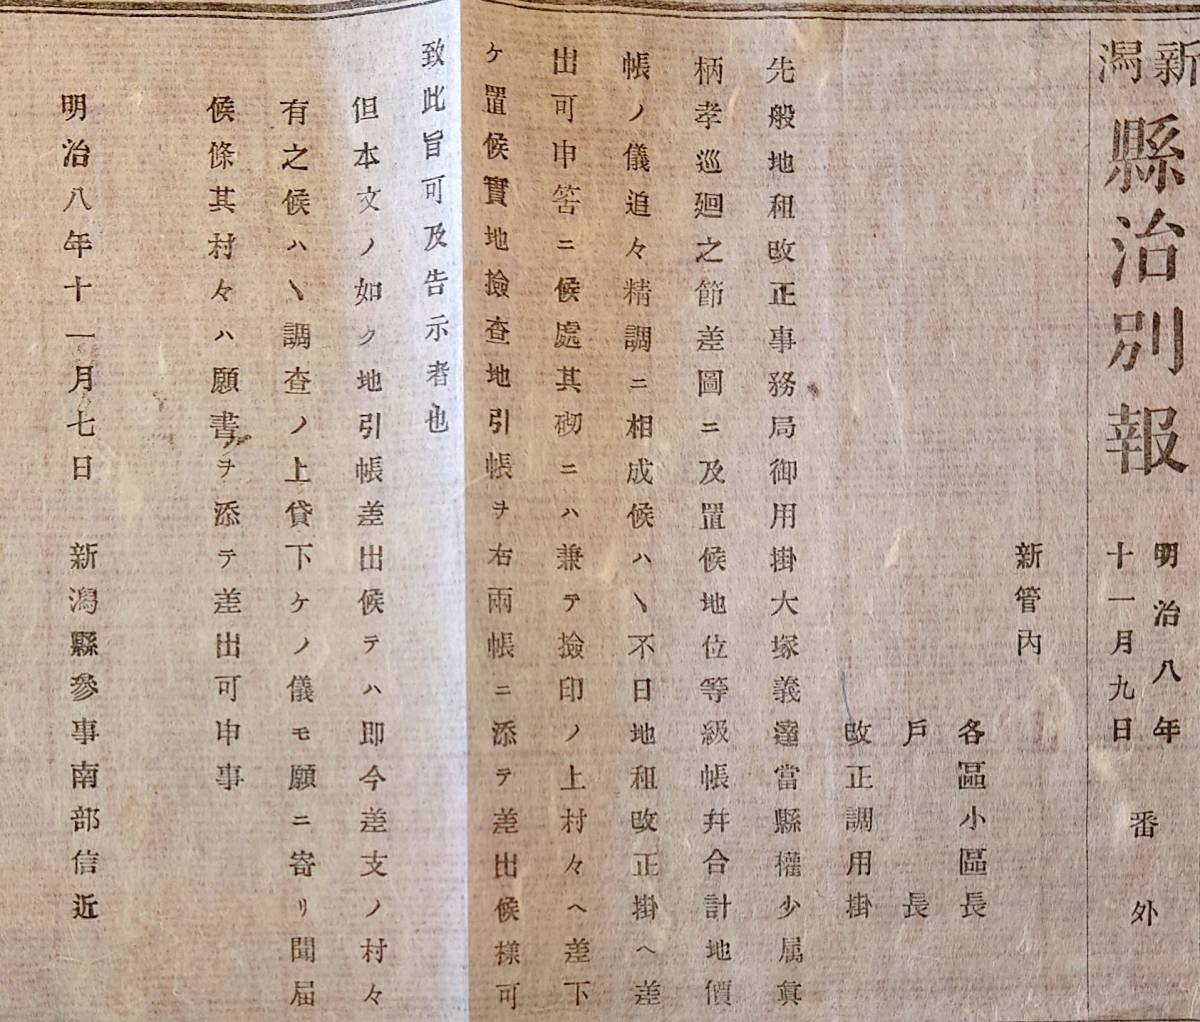 新潟縣治別報
明治八年
十一月九日
番外
新管内
各區小區長
戸長
改正調用掛
先般地租改正事務局御用掛大塚義達當縣權少属眞
柄孝巡廻之節差圖ニ及置候地位等級帳幷合計地價
帳ノ儀追々精調ニ相成候ハヽ不日地租改正掛ヘ差
出可申筈ニ候處其砌ニハ兼テ撿印ノ上村々ヘ差下
ケ置候實地撿査地引帳ヲ右兩帳ニ添テ差出候樣可
致此旨可及告示者也
但本文ノ如ク地引帳差出候テハ即今差支ノ村々
有之候ハヽ調査ノ上貸下ケノ儀モ願ニ寄リ聞届
候條其村々ハ願書ヲ添テ差出可申事
明治八年十一月七日
新潟縣參事南部信近